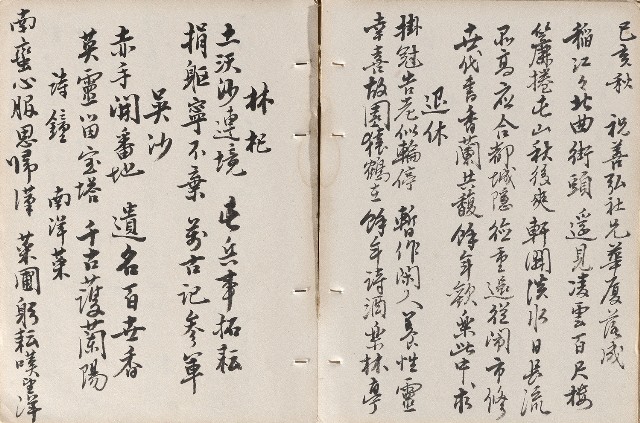 己亥秋 祝善弘社兄華厦落成
稻江之北曲街頭 遥見凌雲百尺樓
簾捲屯山秋後爽 軒開淡水日長流
品高应合都城隱 德重還從鬧市修
世代書香蘭共馥 餘年欲樂此中求
退休
掛冠告老似輪停 暫作闲人養性靈
幸喜故園猿鶴在 餘年詩酒樂林亭
林杞
土沃沙連境 屯兵事拓耘
捐軀寧不棄 萬古記参軍
吳沙
赤手開番地 遺名百世香
英靈留宝塔 千古護蘭陽
詩鐘 南洋菜
南蛮心服思帰漢 菜圃躬耘嘆望洋